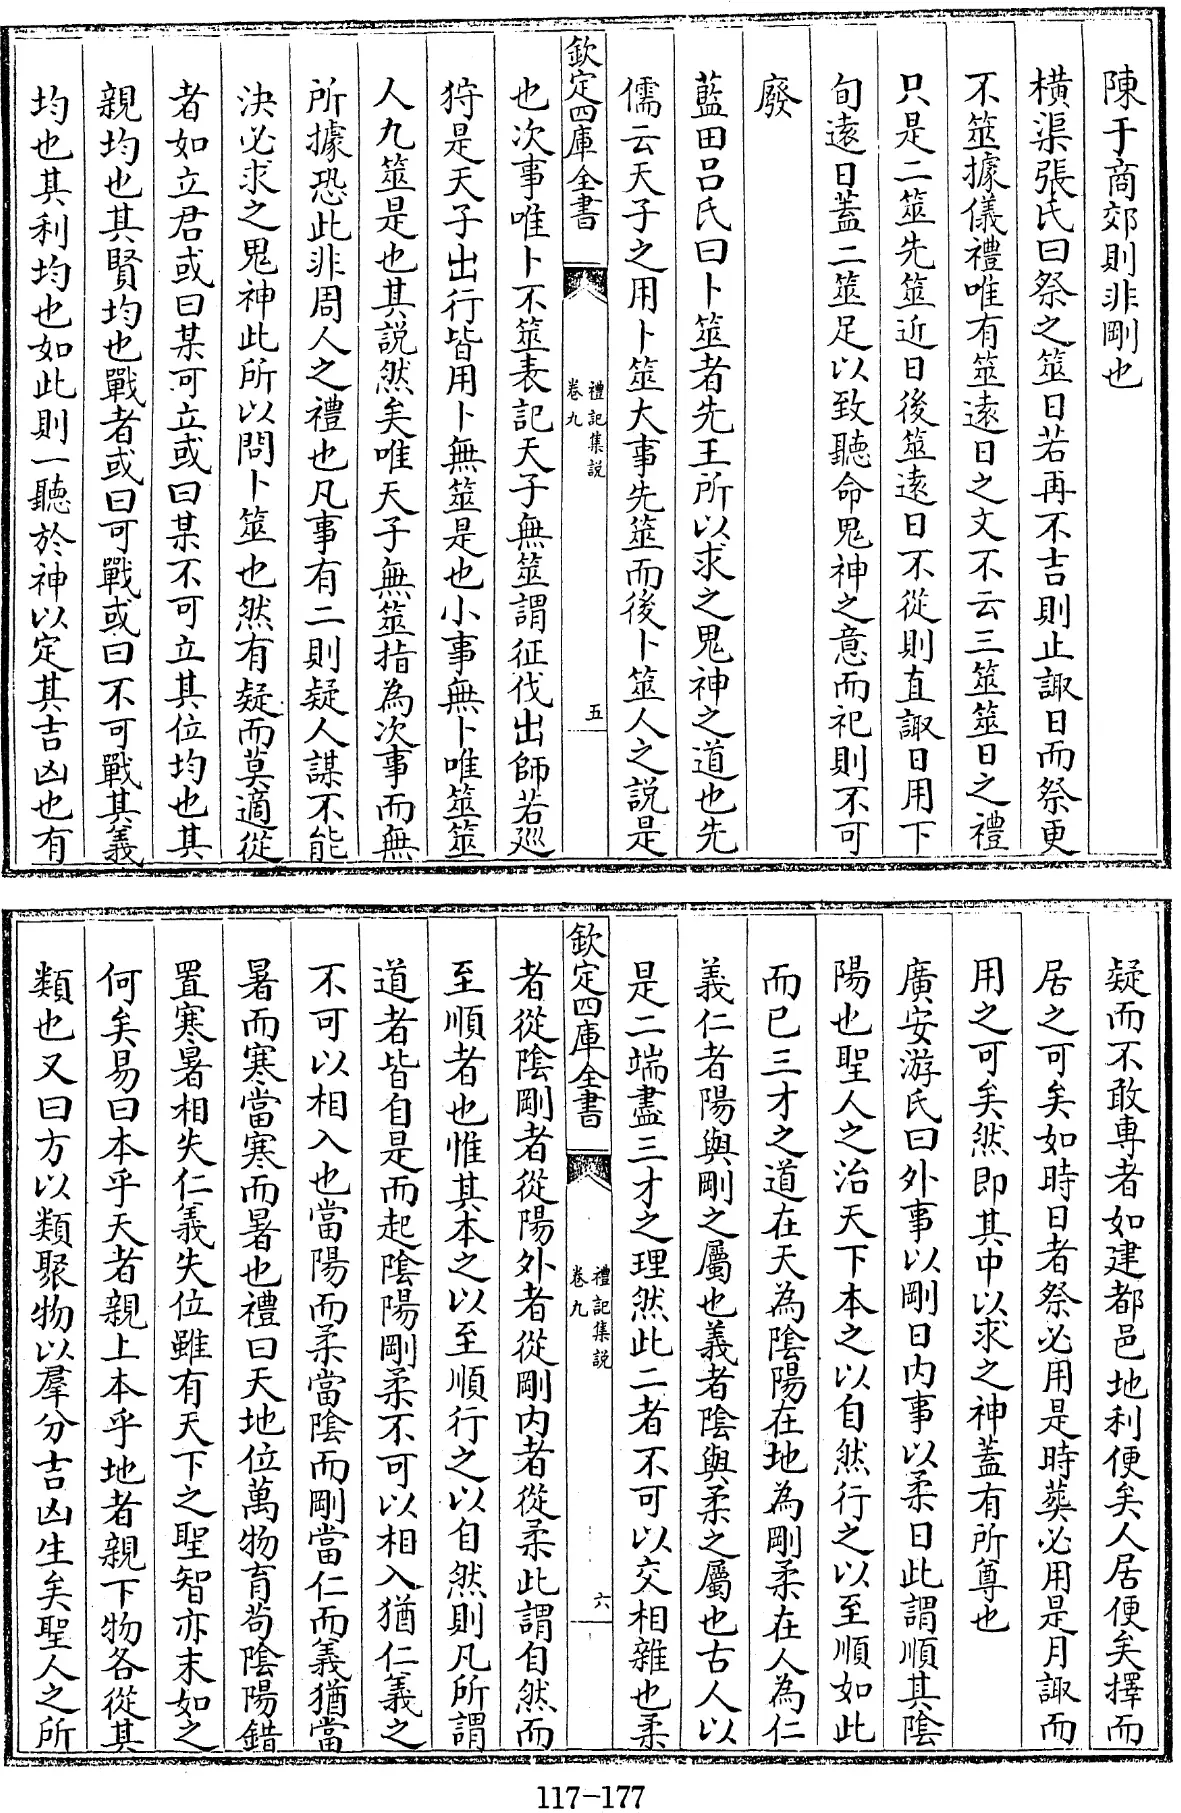 陳于商郊則非剛也
橫渠張氏曰祭之筮日若再不吉則止諏日而祭更
不筮據儀禮唯有筮逺日之文不云三筮筮日之禮
只是二筮先筮近日後筮逺日不從則直諏日用下
旬逺日蓋二筮足以致聽命鬼神之意而祀則不可
廢
藍田吕氏曰卜筮者先王所以求之鬼神之道也先
儒云天子之用卜筮大事先筮而後卜筮人之説是
欽定四庫全書
禮記集説
卷九
五
也次事唯卜不筮表記天子無筮謂征伐出師若廵
狩是天子出行皆用卜無筮是也小事無卜唯筮筮
人九筮是也其説然矣唯天子無筮指為次事而無
所據恐此非周人之禮也凡事有二則疑人謀不能
決必求之鬼神此所以問卜筮也然有疑而莫適從
者如立君或曰某可立或曰某不可立其位均也其
親均也其賢均也戰者或曰可戰或曰不可戰其義
均也其利均也如此則一聽於神以定其吉凶也有
疑而不敢専者如建都邑地利便矣人居便矣擇而
居之可矣如時日者祭必用是時葬必用是月諏而
用之可矣然即其中以求之神蓋有所尊也
廣安游氏曰外事以剛日内事以柔日此謂順其陰
陽也聖人之治天下本之以自然行之以至順如此
而已三才之道在天為陰陽在地為剛柔在人為仁
義仁者陽與剛之屬也義者陰與柔之屬也古人以
是二端盡三才之理然此二者不可以交相雜也柔
欽定四庫全書
禮記集説
卷九
六
者從陰剛者從陽外者從剛内者從柔此謂自然而
至順者也惟其本之以至順行之以自然則凡所謂
道者皆自是而起陰陽剛柔不可以相入猶仁義之
不可以相入也當陽而柔當陰而剛當仁而義猶當
暑而寒當寒而暑也禮曰天地位萬物育苟陰陽錯
置寒暑相失仁義失位雖有天下之聖智亦末如之
何矣易曰本乎天者親上本乎地者親下物各從其
類也又曰方以類聚物以羣分吉凶生矣聖人之所
117-177